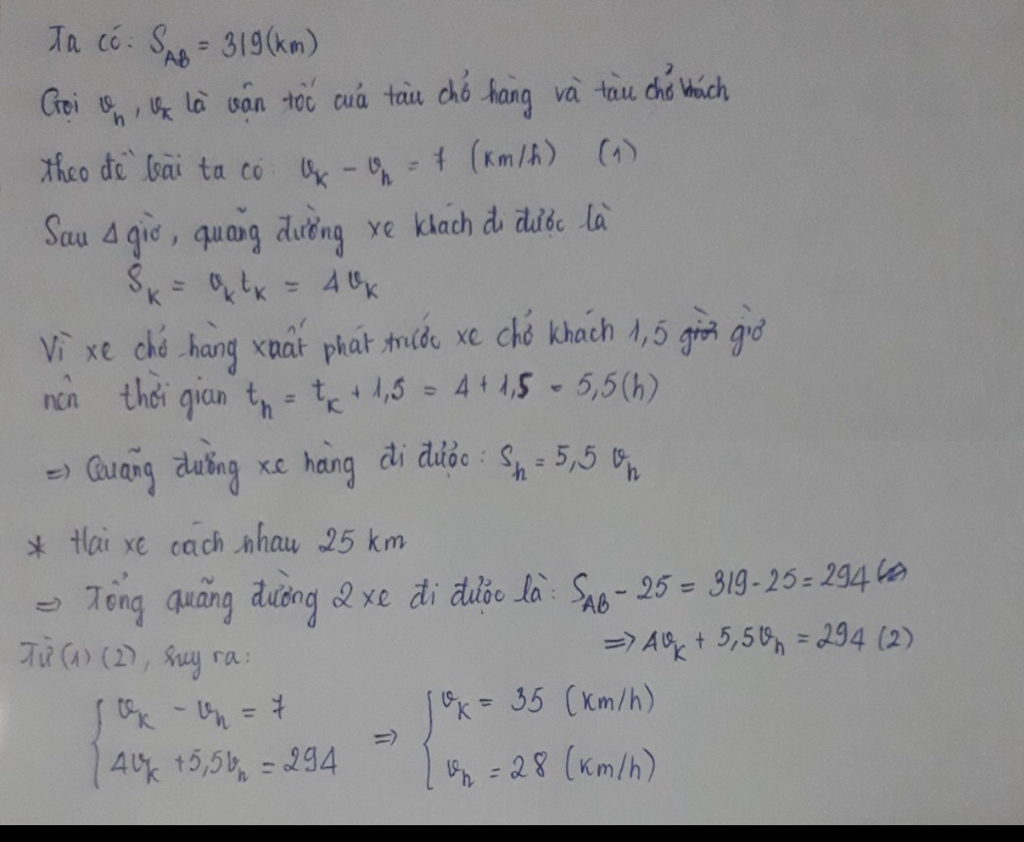 Ta có: S_AB = 319 (km)
Gọi v_h, v_k là vận tốc của tàu chở hàng và tàu chở khách
theo đề bài ta có: v_k - v_h = 7 (km/h) (1)
Sau 4 giờ, quãng đường xe khách đi được là
S_k = v_k t_k = 4v_k
Vì xe chở hàng xuất phát trước xe chở khách 1,5 giờ giờ
nên thời gian t_h = t_k + 1,5 = 4 + 1,5 = 5,5 (h)
=> Quãng đường xe hàng đi được: S_h = 5,5 v_h
* Hai xe cách nhau 25 km
=> Tổng quãng đường 2 xe đi được là: S_AB - 25 = 319 - 25 = 294
=> 4v_k + 5,5v_h = 294 (2)
Từ (1) (2), suy ra:
{ v_k - v_h = 7 => { v_k = 35 (km/h)
4v_k + 5,5v_h = 294 v_h = 28 (km/h)